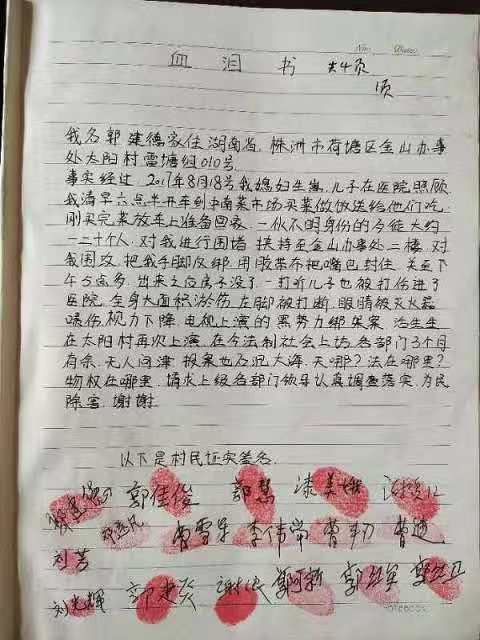 No. Date.
血泪书 共4页
页
我名郭建德家住湖南省,株洲市荷塘区金山办事
处太阳村雷塘组010号
事实经过,2017年8月18号我媳妇生崽,儿子在医院照顾
我清早六点半开车到中南菜市场买菜做饭送给他们吃,
刚买完菜放车上准备回家,一伙不明身份的人徒大约
一二十个人,对我进行围堵,挟持至金山办事处二楼,对
我围攻,把我手脚反绑,用胶带布把嘴巴封住,关至下
午5点多,出来之后房子没了,一打听儿子也被打伤进了
医院,全身大面积冻伤,左脚被打断,眼睛被灭火器
喷伤视力下降,电视上演的黑势力绑架案,活生生
在太阳村再次上演,在今法制社会上访各部门3个月
有余,无人问津,报案也石沉大海,天哪?法在哪里?
物权在哪里,请求上级各部门领导认真调查落实,为民
除害,谢谢
以下是村民证实签名,
郭佳俊 郭慧 漆美娥
曹雪华 李伟 曹
刘芳
刘光辉 郭建